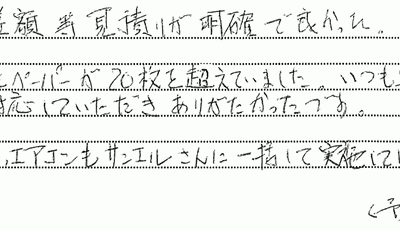 差額等見積りが明確で良かった。
ペーパーが70枚を超えていました。いつも
対応していただきありがたかったです。
、エアコンもサンエルさんに一括して実施して